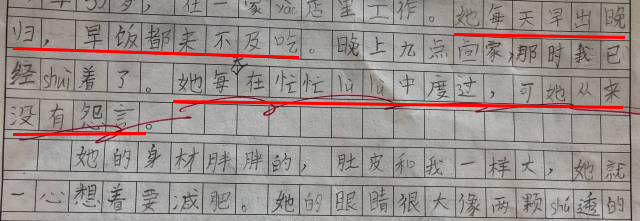 在一家yao店里工作。她每天早出晚
归，早饭都来不及吃。晚上九点回家，那时我已
经shui着了。她每天在忙忙lu lu中度过，可她从来
没有怨言。
她的身材胖胖的，肚皮和我一样大，她就
一心想着要减肥。她的眼睛很大像两颗shu透的